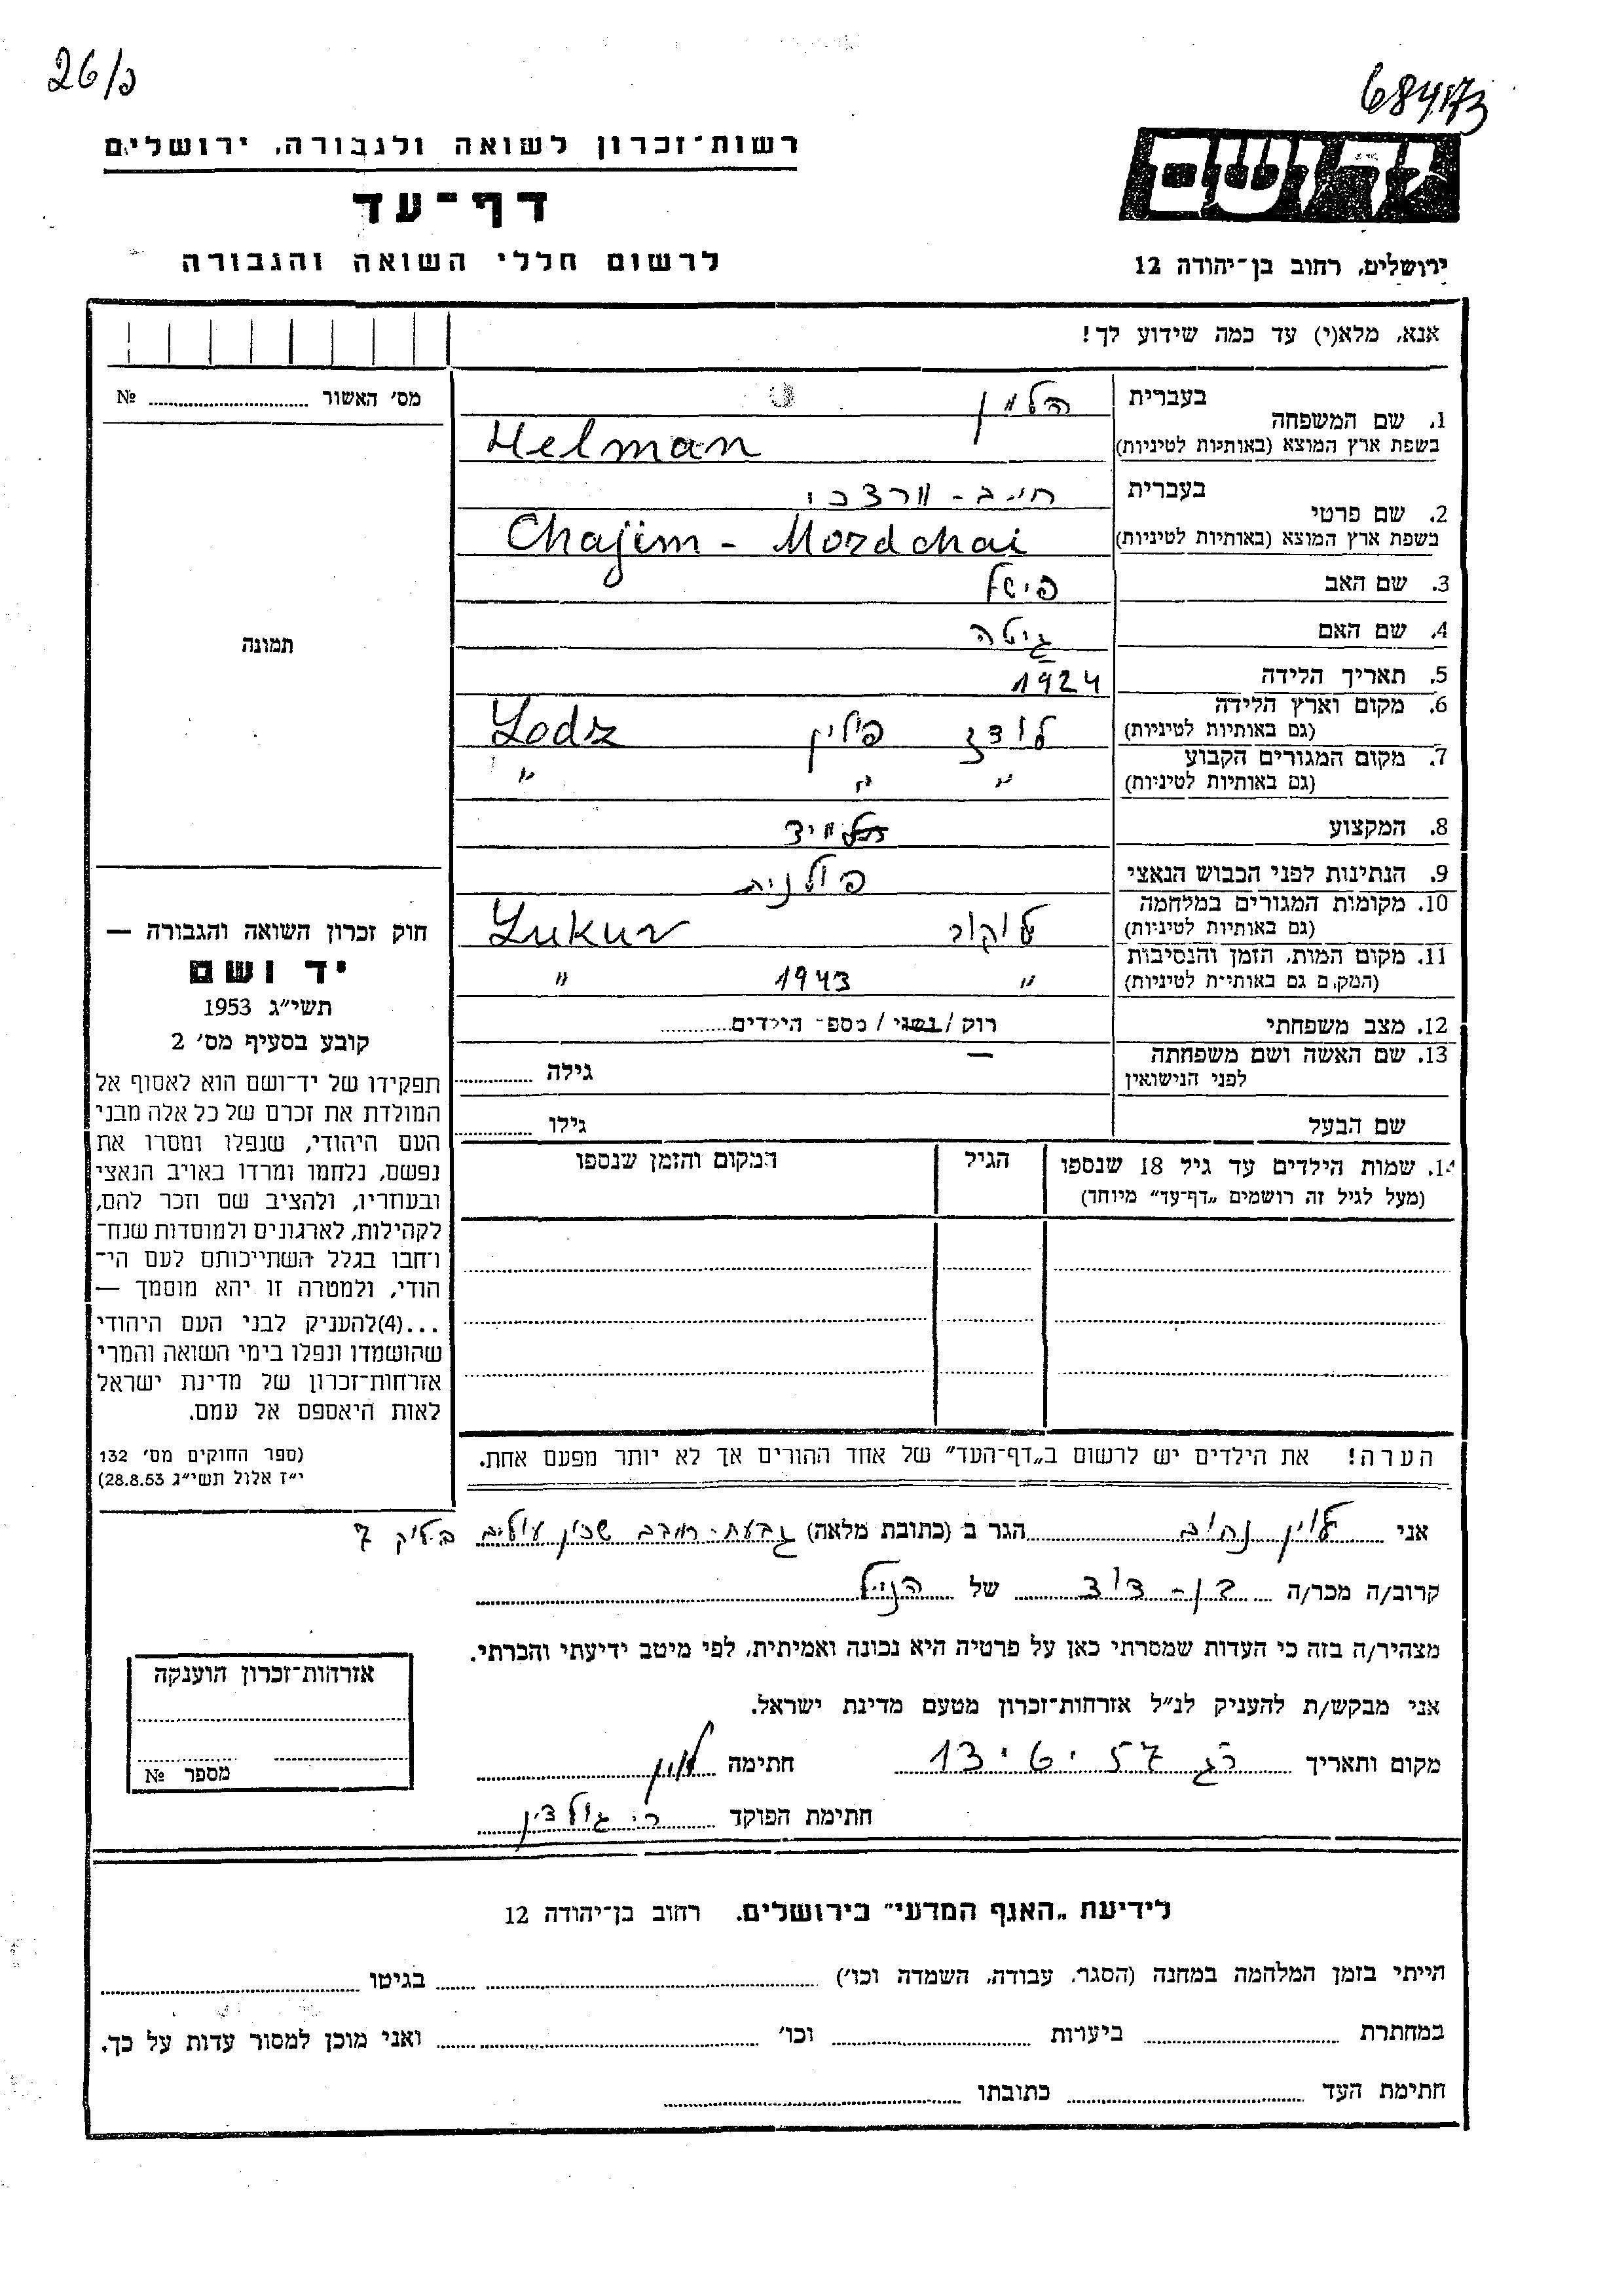 26/כ
68473
רשות־זכרון לשואה ולגבורה, ירושלים
יד ושם
דף־עד
לרשום חללי השואה והגבורה
ירושלים, רחוב בן־יהודה 12
אנא, מלא(י) עד כמה שידוע לך!
מס' האשור № 
תמונה
1. שם המשפחה
בעברית הלמן
בשפת ארץ המוצא (באותיות לטיניות) Helman
2. שם פרטי
בעברית חיים - מרדכי
בשפת ארץ המוצא (באותיות לטיניות) Chajim - Mordchai
3. שם האב פישל
4. שם האם גיטה
5. תאריך הלידה 1924
6. מקום וארץ הלידה (גם באותיות לטיניות) לודז פולין Lodz
7. מקום המגורים הקבוע (גם באותיות לטיניות) " " "
8. המקצוע תלמיד
9. הנתינות לפני הכבוש הנאצי פולנית
10. מקומות המגורים במלחמה (גם באותיות לטיניות) לוקוב Lukuv
11. מקום המות, הזמן והנסיבות (המקום גם באותיות לטיניות) " 1943 "
12. מצב משפחתי רוק / נשוי / מספר הילדים
13. שם האשה ושם משפחתה לפני הנישואין — גילה
שם הבעל גילו
14. שמות הילדים עד גיל 18 שנספו (מעל לגיל זה רושמים „דף־עד" מיוחד) הגיל המקום והזמן שנספו
הערה! את הילדים יש לרשום ב„דף־העד" של אחד ההורים אך לא יותר מפעם אחת.
חוק זכרון השואה והגבורה —
יד ושם
תשי"ג 1953
קובע בסעיף מס' 2
תפקידו של יד־ושם הוא לאסוף אל
המולדת את זכרם של כל אלה מבני
העם היהודי, שנפלו ומסרו את
נפשם, נלחמו ומרדו באויב הנאצי
ובעוזריו, ולהציב שם וזכר להם,
לקהילות, לארגונים ולמוסדות שנח־
רבו בגלל השתייכותם לעם הי־
הודי, ולמטרה זו יהא מוסמך —
...(4)להעניק לבני העם היהודי
שהושמדו ונפלו בימי השואה והמרי
אזרחות־זכרון של מדינת ישראל
לאות היאספם אל עמם.
(ספר החוקים מס' 132
י"ז אלול תשי"ג 28.8.53)
אני לוין נחום הגר ב (כתובת מלאה) גבעת-רמב שכון עולים בלוק 7
קרוב/ה מכר/ה בן-דוד של הנ"ל
מצהיר/ה בזה כי העדות שמסרתי כאן על פרטיה היא נכונה ואמיתית, לפי מיטב ידיעתי והכרתי.
אני מבקש/ת להעניק לנ"ל אזרחות־זכרון מטעם מדינת ישראל.
מקום ותאריך רג 13.6.57 חתימה לוין
חתימת הפוקד
אזרחות־זכרון הוענקה
מספר №
לידיעת „האגף המדעי" בירושלים. רחוב בן־יהודה 12
הייתי בזמן המלחמה במחנה (הסגר, עבודה, השמדה וכו') בגיטו
במחתרת ביערות וכו' ואני מוכן למסור עדות על כך.
חתימת העד כתובתו